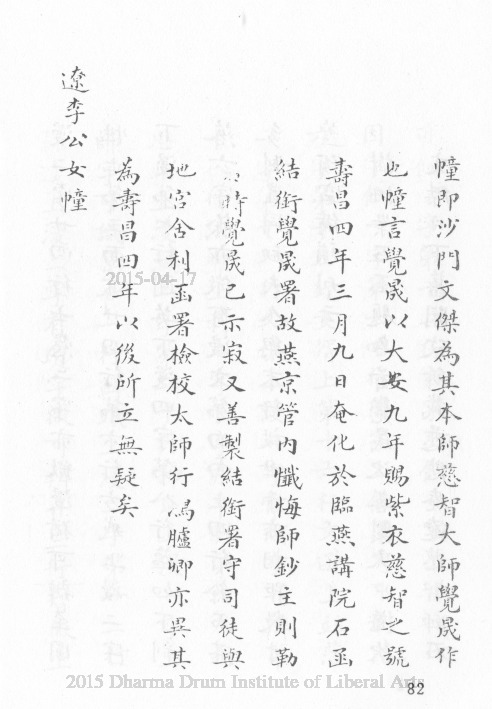 幢即沙門文傑為其本師慈智大師覺晟作
也幢言覺晟以大安九年賜紫衣慈智之號
壽昌四年三月九日奄化於臨燕講院石函
結銜覺晟署故燕京管內懺悔師鈔主則勒
時覺晟已示寂又善製結銜署守司徒與
地宮舍利函署檢校太師行鴻臚卿亦異其
為壽昌四年以後所立無疑矣
遼李公女幢
2015-04-17
2015 Dharma Drum Institute of Liberal Arts
82